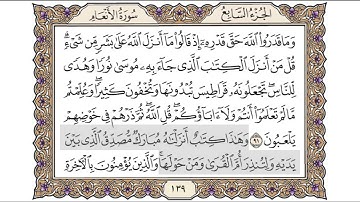 الجزء السابع
سورة الأنعام
وَمَا قَدَرُوا۟ ٱللَّهَ حَقَّ قَدْرِهِۦٓ إِذْ قَالُوا۟ مَآ أَنزَلَ ٱللَّهُ عَلَىٰ بَشَرٍ مِّن شَىْءٍ ۗ
قُلْ مَنْ أَنزَلَ ٱلْكِتَٰبَ ٱلَّذِى جَآءَ بِهِۦ مُوسَىٰ نُورًا وَهُدًى
لِّلنَّاسِ ۖ تَجْعَلُونَهُۥ قَرَاطِيسَ تُبْدُونَهَا وَتُخْفُونَ كَثِيرًا ۖ وَعُلِّمْتُم
مَّا لَمْ تَعْلَمُوٓا۟ أَنتُمْ وَلَآ ءَابَآؤُكُمْ ۖ قُلِ ٱللَّهُ ۖ ثُمَّ ذَرْهُمْ فِى خَوْضِهِمْ
يَلْعَبُونَ ٩١ وَهَٰذَا كِتَٰبٌ أَنزَلْنَٰهُ مُبَارَكٌ مُّصَدِّقُ ٱلَّذِى بَيْنَ
يَدَيْهِ وَلِتُنذِرَ أُمَّ ٱلْقُرَىٰ وَمَنْ حَوْلَهَا ۚ وَٱلَّذِينَ يُؤْمِنُونَ بِٱلْءَاخِرَةِ
١٣٩